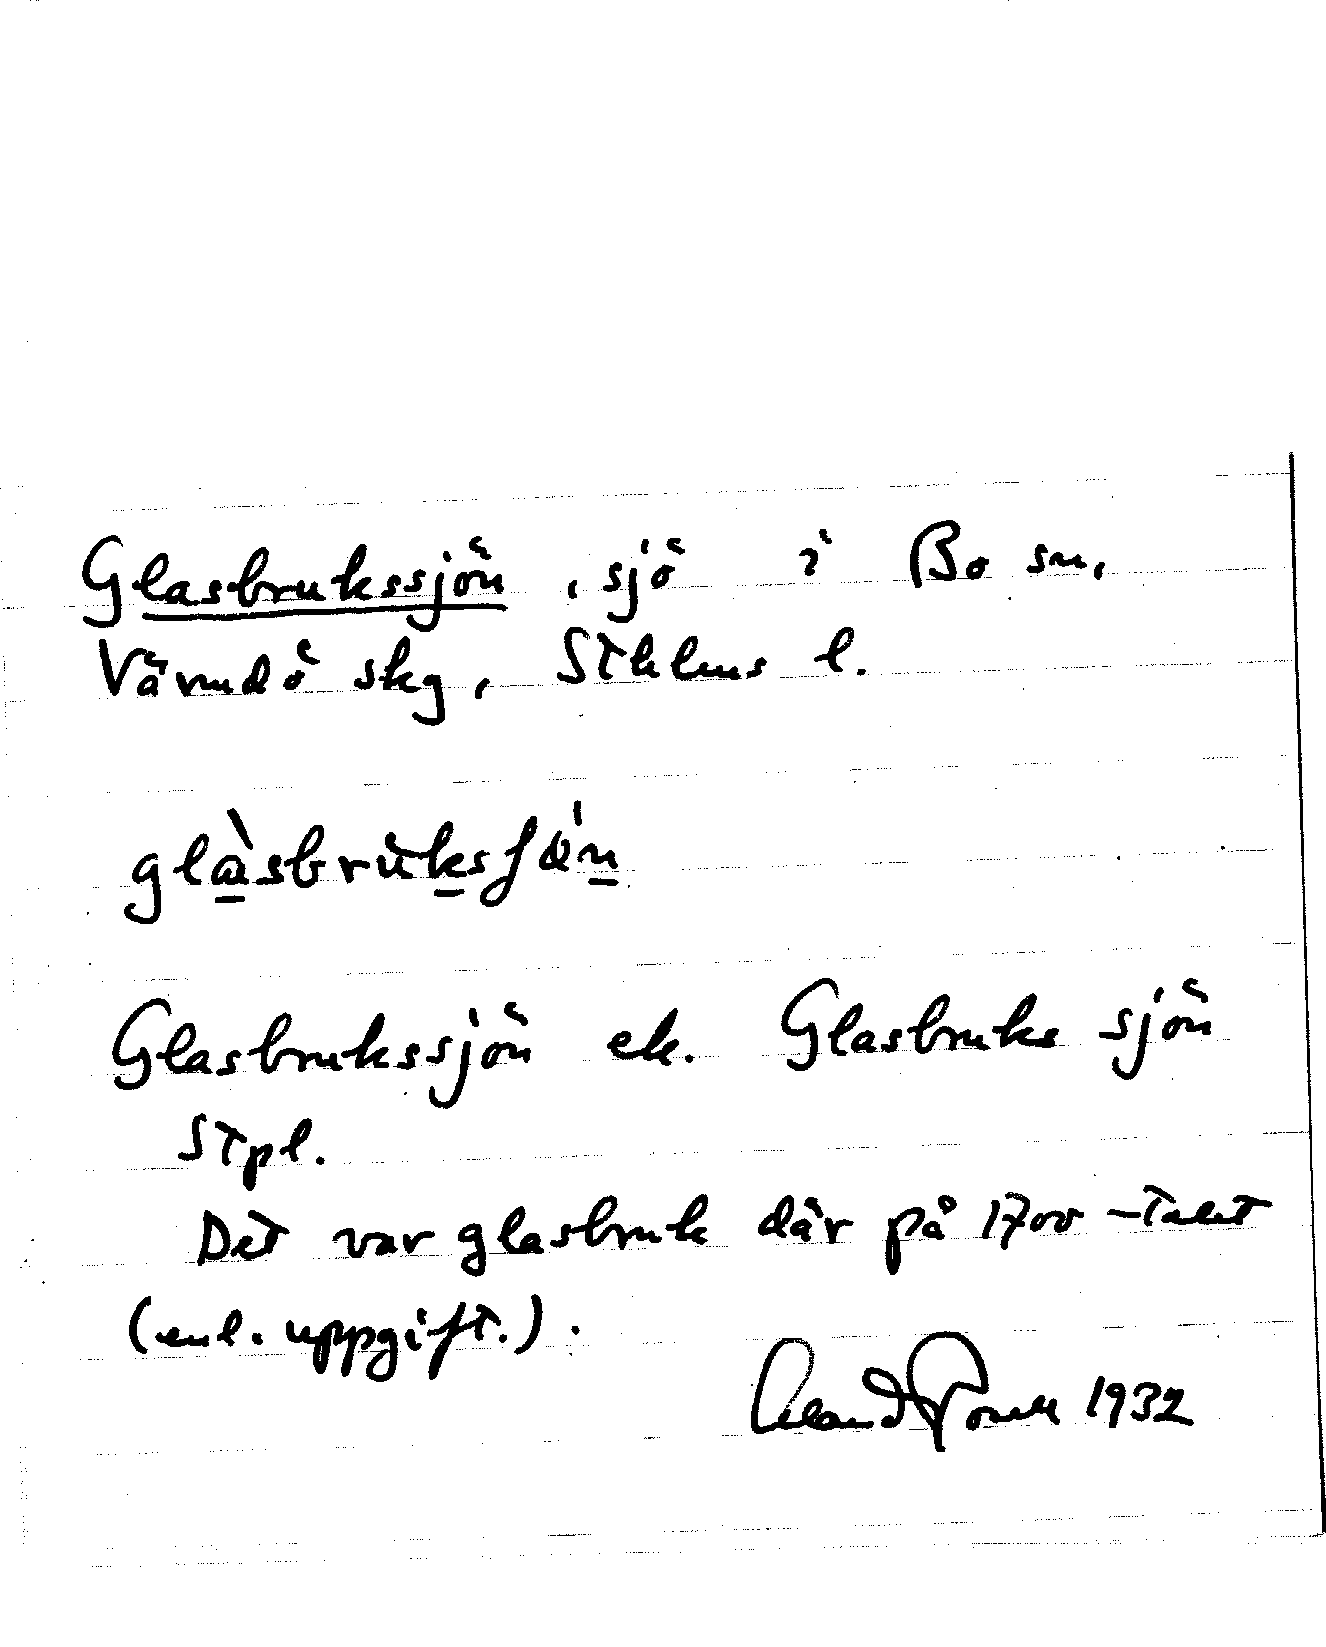 Glasbrukssjön, sjö i Bo sn,
Värmdö skg, Sthlms l.
Glasbrukssjön ek. Glasbruks sjön
Stpl.
Det var glasbruk där på 1700-talet
(enl. uppgift.).
1932